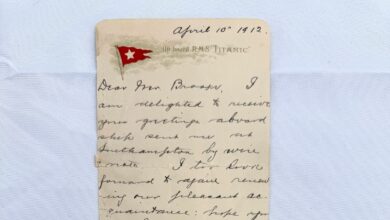 April 10th 1912.
On board R.M.S. "TITANIC"
Dear Mrs Brooxer, I
am delighted to receive
your greetings aboard
ship sent me at
Southampton by wire
note. I too look
forward to again renew
ing our pleasant ac
quaintance: hope you